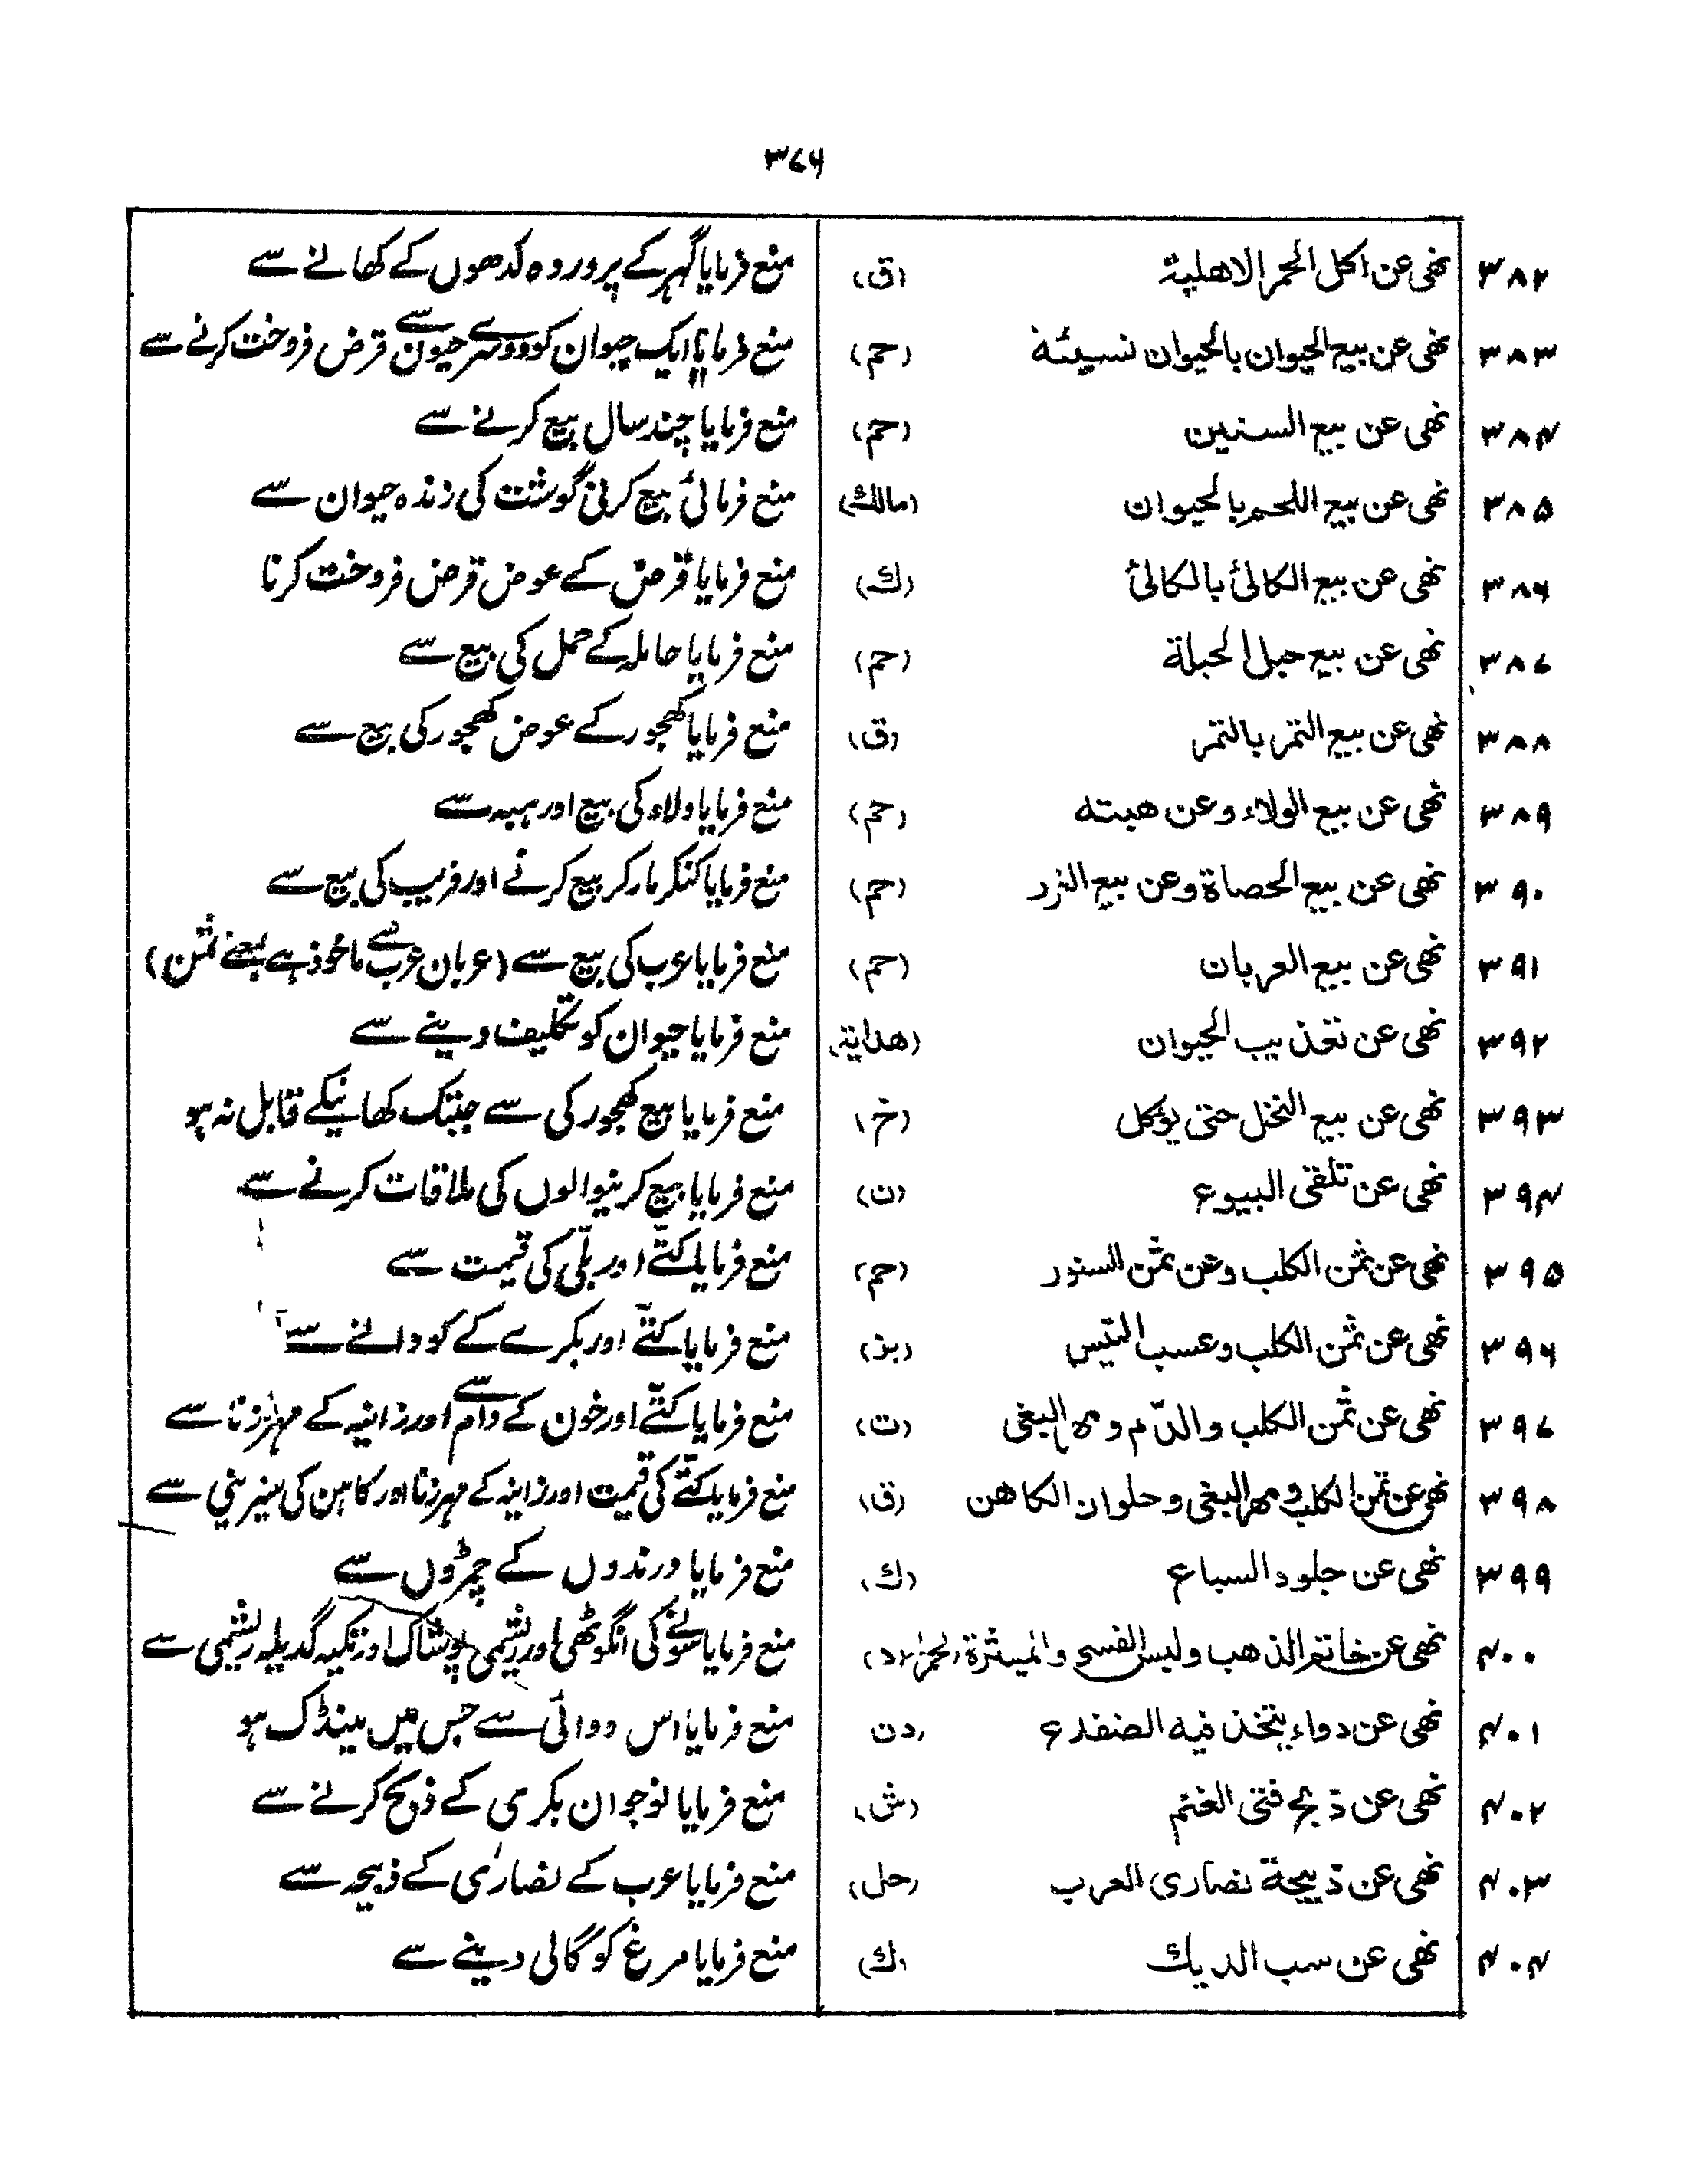 ۳۷۶
۳۸۲ نھی عن اکل الحمر الاھلیة (ق) منع فرمایا گہر کے پروردہ گدھوں کے کھانے سے
۳۸۳ نھی عن بیع الحیوان بالحیوان نسیئة (حم) منع فرمایا ایک حیوان کو دوسرے حیون سے قرض فروخت کرنے سے
۳۸۴ نھی عن بیع السنین (حم) منع فرمایا چند سال بیع کرنے سے
۳۸۵ نھی عن بیع اللحم بالحیوان (مالك) منع فرمائی بیع کرنی گوشت کی زندہ حیوان سے
۳۸۶ نھی عن بیع الکالئ بالکالئ (ك) منع فرمایا قرض کے عوض قرض فروخت کرنا
۳۸۷ نھی عن بیع حبل الحبلة (حم) منع فرمایا حاملہ کے حمل کی بیع سے
۳۸۸ نھی عن بیع التمر بالتمر (ق) منع فرمایا کھجور کے عوض کھجور کی بیع سے
۳۸۹ نھی عن بیع الولاء وعن ھبته (حم) منع فرمایا ولاء کی بیع اور ہبہ سے
۳۹۰ نھی عن بیع الحصاة وعن بیع الغرر (حم) منع فرمایا کنکر مار کر بیع کرنے اور فریب کی بیع سے
۳۹۱ نھی عن بیع العربان (حم) منع فرمایا عرب کی بیع سے (عربان عرب سے ماخوذ ہے بمعنے ثمن)
۳۹۲ نھی عن تعذیب الحیوان (ھدایة) منع فرمایا حیوان کو تکلیف دینے سے
۳۹۳ نھی عن بیع النخل حتی یؤکل (خ) منع فرمایا بیع کھجور کی سے جبتک کھانیکے قابل نہ ہو
۳۹۴ نھی عن تلقی البیوع (ن) منع فرمایا بیع کرنیوالوں کی ملاقات کرنے سے
۳۹۵ نھی عن ثمن الکلب وعن ثمن السنور (حم) منع فرمایا کتّے اور بلّی کی قیمت سے
۳۹۶ نھی عن ثمن الکلب وعسب التیس (بز) منع فرمایا کتّے اور بکرے کے کودانے سے
۳۹۷ نھی عن ثمن الکلب والدّم ومھر البغی (ت) منع فرمایا کتّے اور خون کے دام سے اور زانیہ کے مہر زنا سے
۳۹۸ نھی عن ثمن الکلب ومھر البغی وحلوان الکاھن (ق) منع فرمایا کتّے کی قیمت اور زانیہ کے مہر زنا اور کاہن کی شیرینی سے
۳۹۹ نھی عن جلود السباع (ك) منع فرمایا درندوں کے چمڑوں سے
۴۰۰ نھی عن خاتم الذھب ولبس القسی والمیثرة الحمراء (د) منع فرمایا سونے کی انگوٹھی اور ریشمی پوشاک اور تکیہ گدیلہ ریشمی سے
۴۰۱ نھی عن دواء یتخذ فیه الضفدع (دن منع فرمایا اس دوائی سے جس میں مینڈک ہو
۴۰۲ نھی عن ذبح فتی الغنم (ش) منع فرمایا نوجوان بکری کے ذبح کرنے سے
۴۰۳ نھی عن ذبیحة نصاری العرب (حل) منع فرمایا عرب کے نصاریٰ کے ذبیحہ سے
۴۰۴ نھی عن سب الدیك (ك) منع فرمایا مرغ کو گالی دینے سے